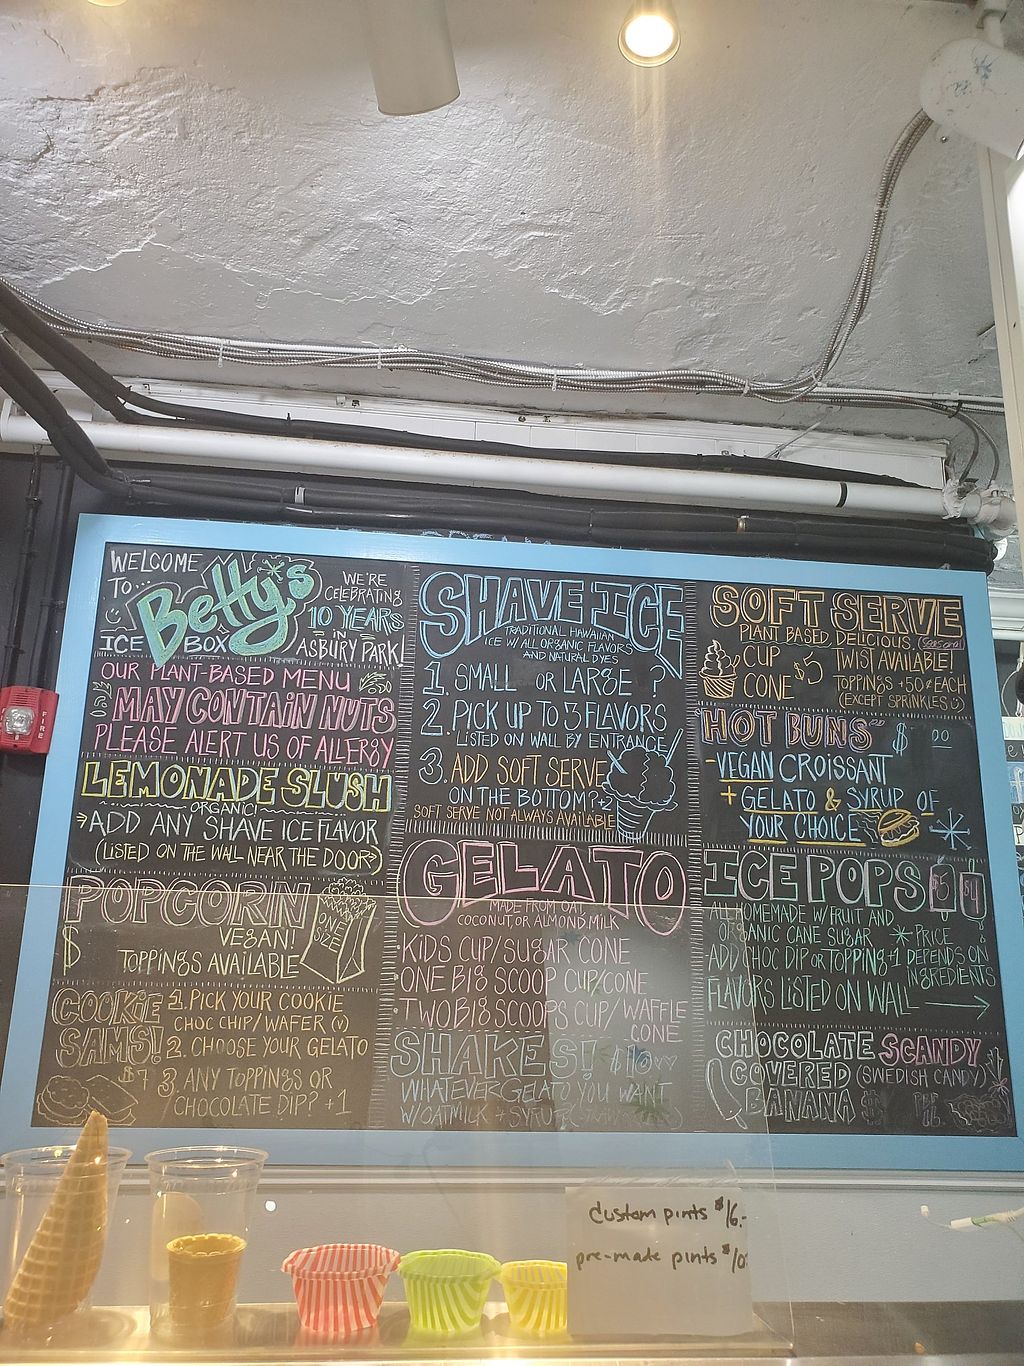 WELCOME
TO...
Betty's
ICE BOX
WE'RE
CELEBRATING
10 YEARS
IN
ASBURY PARK!
OUR PLANT-BASED MENU
MAY CONTAIN NUTS
PLEASE ALERT US OF ALLERGY
LEMONADE SLUSH
ORGANIC!
ADD ANY SHAVE ICE FLAVOR
(LISTED ON THE WALL NEAR THE DOOR)
POPCORN
VEGAN!
$
TOPPINGS AVAILABLE
ONE
SIZE
COOKIE
SAMS!
$7
1. PICK YOUR COOKIE
CHOC CHIP/WAFER (V)
2. CHOOSE YOUR GELATO
3. ANY TOPPINGS OR
CHOCOLATE DIP? +1
SHAVE ICE
TRADITIONAL HAWAIIAN
ICE W/ ALL ORGANIC FLAVORS
AND NATURAL DYES
1. SMALL OR LARGE ?
2. PICK UP TO 3 FLAVORS
LISTED ON WALL BY ENTRANCE
3. ADD SOFT SERVE
ON THE BOTTOM? +2
SOFT SERVE NOT ALWAYS AVAILABLE
GELATO
MADE FROM OAT,
COCONUT, OR ALMOND MILK
KIDS CUP/SUGAR CONE
ONE BIG SCOOP CUP/CONE
TWO BIG SCOOPS CUP/WAFFLE
CONE
SHAKES! $10
WHATEVER GELATO YOU WANT
W/OATMILK + SYRUP
SOFT SERVE
PLANT BASED. DELICIOUS. (Seasonal)
CUP
CONE
$5
TWIST AVAILABLE!
TOPPINGS +50¢ EACH
(EXCEPT SPRINKLES)
HOT BUNS $ 00
-VEGAN CROISSANT
+GELATO & SYRUP OF
YOUR CHOICE
ICE POPS
ALL HOMEMADE W/ FRUIT AND
ORGANIC CANE SUGAR
ADD CHOC DIP OR TOPPING +1
* PRICE
DEPENDS ON
INGREDIENTS
FLAVORS LISTED ON WALL
CHOCOLATE
COVERED
BANANA
SCANDY
(SWEDISH CANDY)
Custom pints $16.-
pre-made pints $10
FIRE